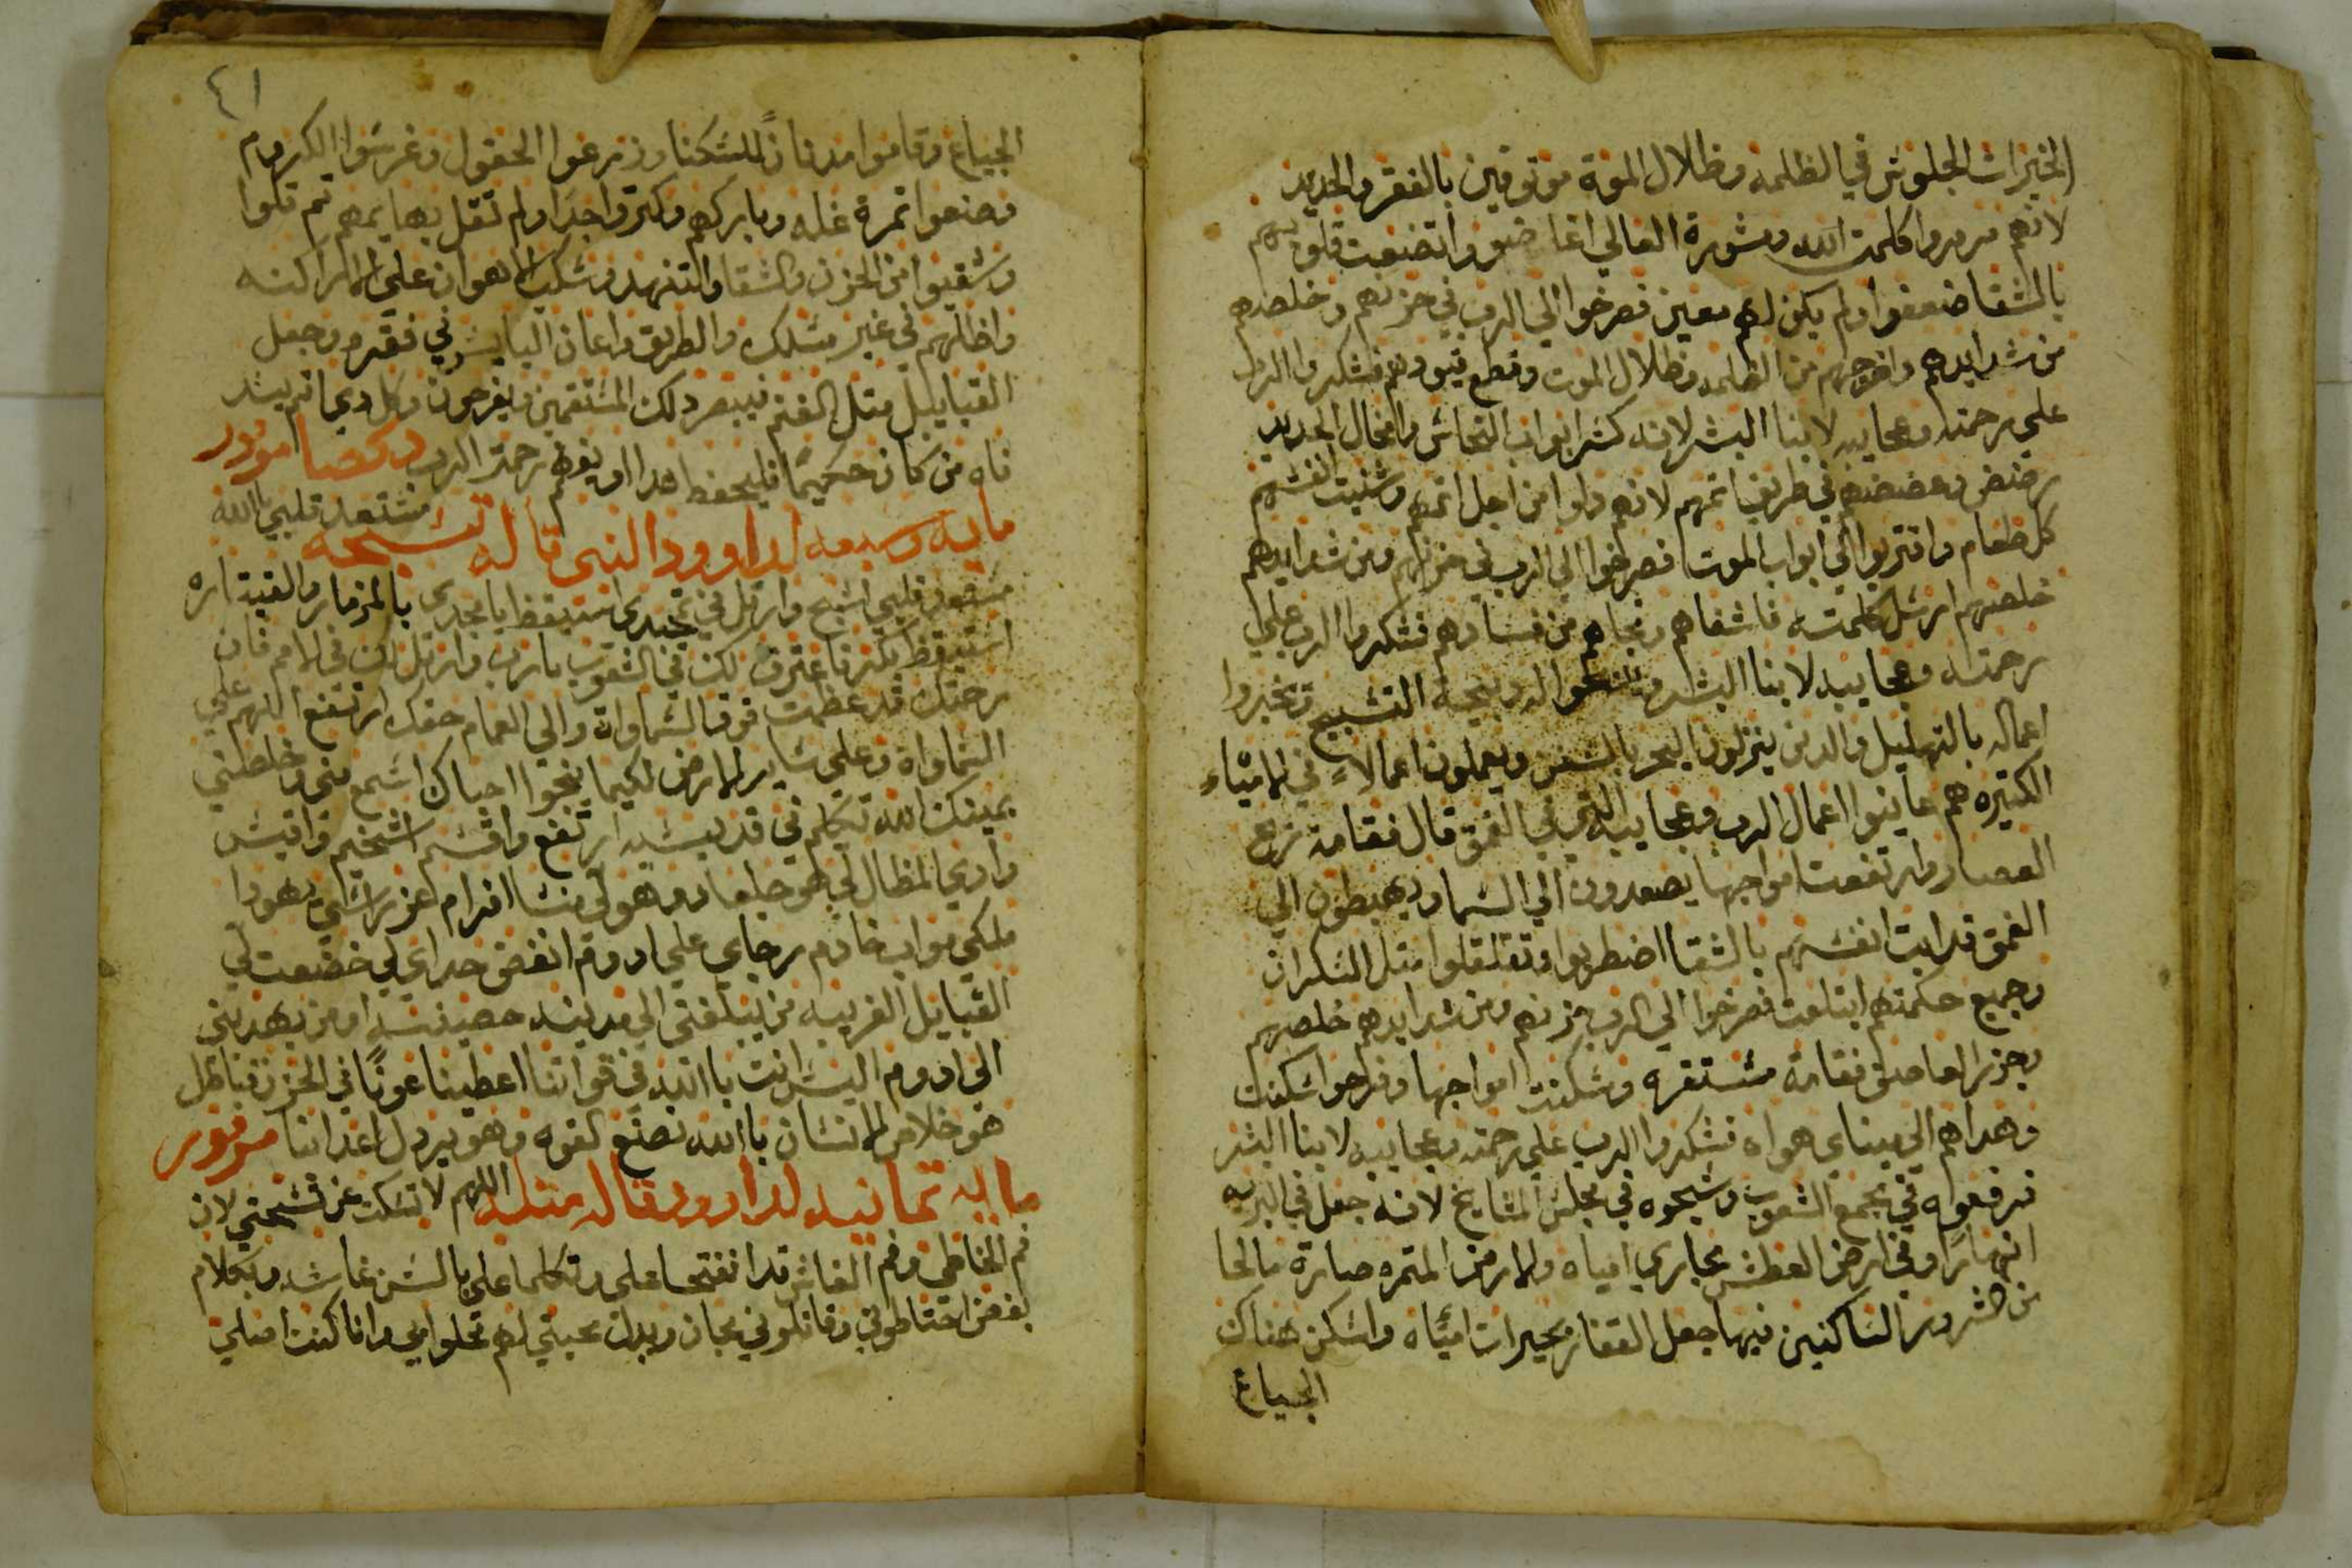 الخيرات الجلوس في الظلمه وظلال الموة موتوقين بالفقر والحديد
لانهم مرمروا كلمت الله ومشورة العالي اغاضبو واتضعت قلوبهم
بالشقا ضعفوا ولم يكن لهم معين فصرخوا الي الرب في حزنهم وخلصهم
من شدايدهم واخرجهم من الظلمه وظلال الموت وقطع قيودهم فشكروا الرب
علي رحمته وعجايبه لابنا البشر لانه كسر ابواب النحاس وامخال الحديد
رضض وعضضهم في طريق اتمهم لانهم دلوا من اجل اتمهم وشنيت انفسهم
كل طعام واقتربوا الي ابواب الموت فصرخوا الي الرب في حزنهم ومن شدايدهم
خلصهم ارسل كلمته فاشفاهم ونجاهم من فسادهم فشكروا الرب علي
رحمته وعجايبه لابنا البشر له وبيحة التسبيح وتخبروا
اعماله بالتهليل والدين ينزلون البحر بالسفن ويعملون اعمالاً في الامياه
الكتيره هم عاينوا اعمال الرب وعجايبه التي في الغمق قال فقامة ريح
العصار وارتفعت امواجها يصعدون الي السما ويهبطون الي
الغمق قدابت انفسهم بالشقا اضطربوا وتقلقلوا متل السكران
وجميع حكمتهم ابتلعت فصرخوا الي الرب حزنهم ومن شدايدهم خلصهم
وجزر العاصف فقامة مستقره وسكنت امواجها وفرحوا سكنت
وهداهم الي ميناي هواه فشكروا الرب علي رحمته وعجايبه لابنا البشر
فرفعواه في مجمع الشعوب وسبحوه في مجلس المشايخ لانه جعل في البريه
انهاراً وفي ارض العطش مجاري امياه والارض المتمره صارة مالحا
من شرور الساكنين فيها جعل القفار بحيرات امياه واسكن هناك
الجياع
٤١
الجياع وقاموا مدناً للسكنا وزرعوا الحقول وغرسوا الكروم
وصنعوا تمرة غله وباركهم وكتروا جدا ولم تقل بهايمهم تم قلوا
وشقيوا من الحزن والشقا والتنهد وسكب الهوان علي الاراكنه
واظلهم في غير مسلك والطريق واعان البايس في فقره وجعل
القبايل متل الغنم فيبصر دلك المستقمين ويفرحون وكل دي اتم يسد
فاه من كان حكيماً فليحفظ هدا او يفهم رحمة الرب
مايه وسبعه لداوود النبي قاله تسبحه مستعد قلبي يا الله
مستعد قلبي اسبح وارتل في تمجيدي استيقظ يا مجدي بالمزمار والقيتاره
استيقظ بكرنا عترف لك في الشعوب يارب وارتل لك في الامم فان
رحمتك قد عظمت فوق السماواة والي الغمام حقك ارتفع اللهم علي
السماواة وعلي ساير الارض لكيما ينجوا احباك اسمع مني وخلصني
بيمينك الله تكلم في قديسيه ارتفع واقسم اشخيم واقيس
وادي المظال لي هو جلعاد وهو لي منسا افرام عز راسي يهودا
ملكي مواب خادم رجاي علي ادوم انفض حداي لي خضعت لي
القبايل الغريبه من يبلغني الي مدينه حصينه او من يهديني
الي ادوم اليس انت يا الله في قواتنا اعطينا عوناً في الحزن فباطل
هو خلاص الانسان يا الله نصنع القوه وهو يردل اعدانا مزمور
مايه تمانيه لداوود قاله متله اللهم لا تسكت عن تسبحتي لان
فم الخاطي وفم الغاش قد انفتحا علي وتكلما علي بالسن غاشه وبكلام
بغض احتاطوني وقاتلوني مجان وبدل محبتي لهم تحلوا بي وانا كنت اصلي